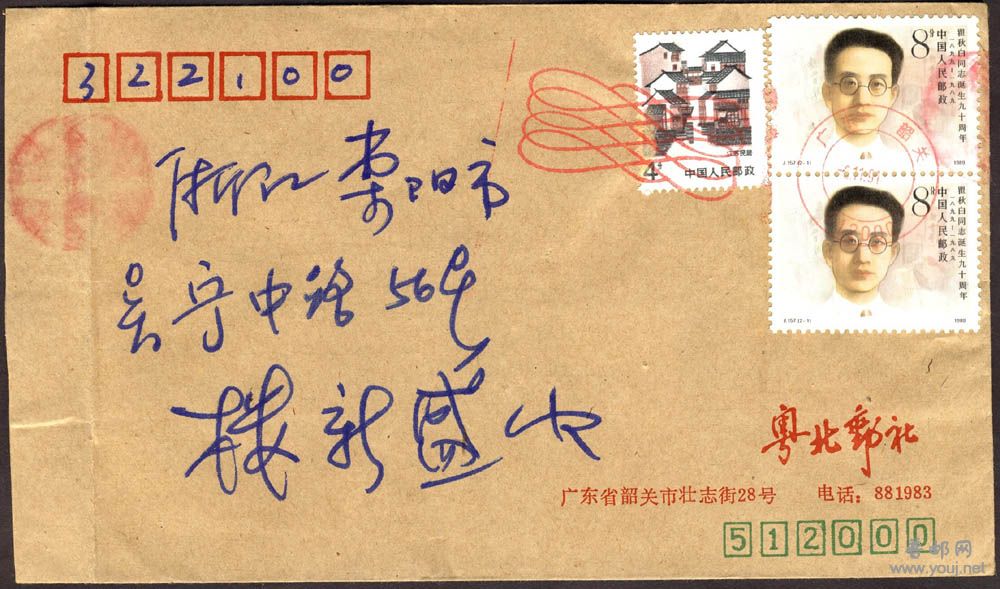 322100
浙江 东阳市
吴宁中路56号
楼新盛 收
4分
江苏民居
中国人民邮政
8分
中国人民邮政
瞿秋白同志诞生九十周年
一八九九－一九八九
J.157.(2-1)
1989
8分
中国人民邮政
瞿秋白同志诞生九十周年
一八九九－一九八九
J.157.(2-1)
1989
广 韶关
粤北报社
广东省韶关市壮志街28号 电话：881983
512000
www.youj.net